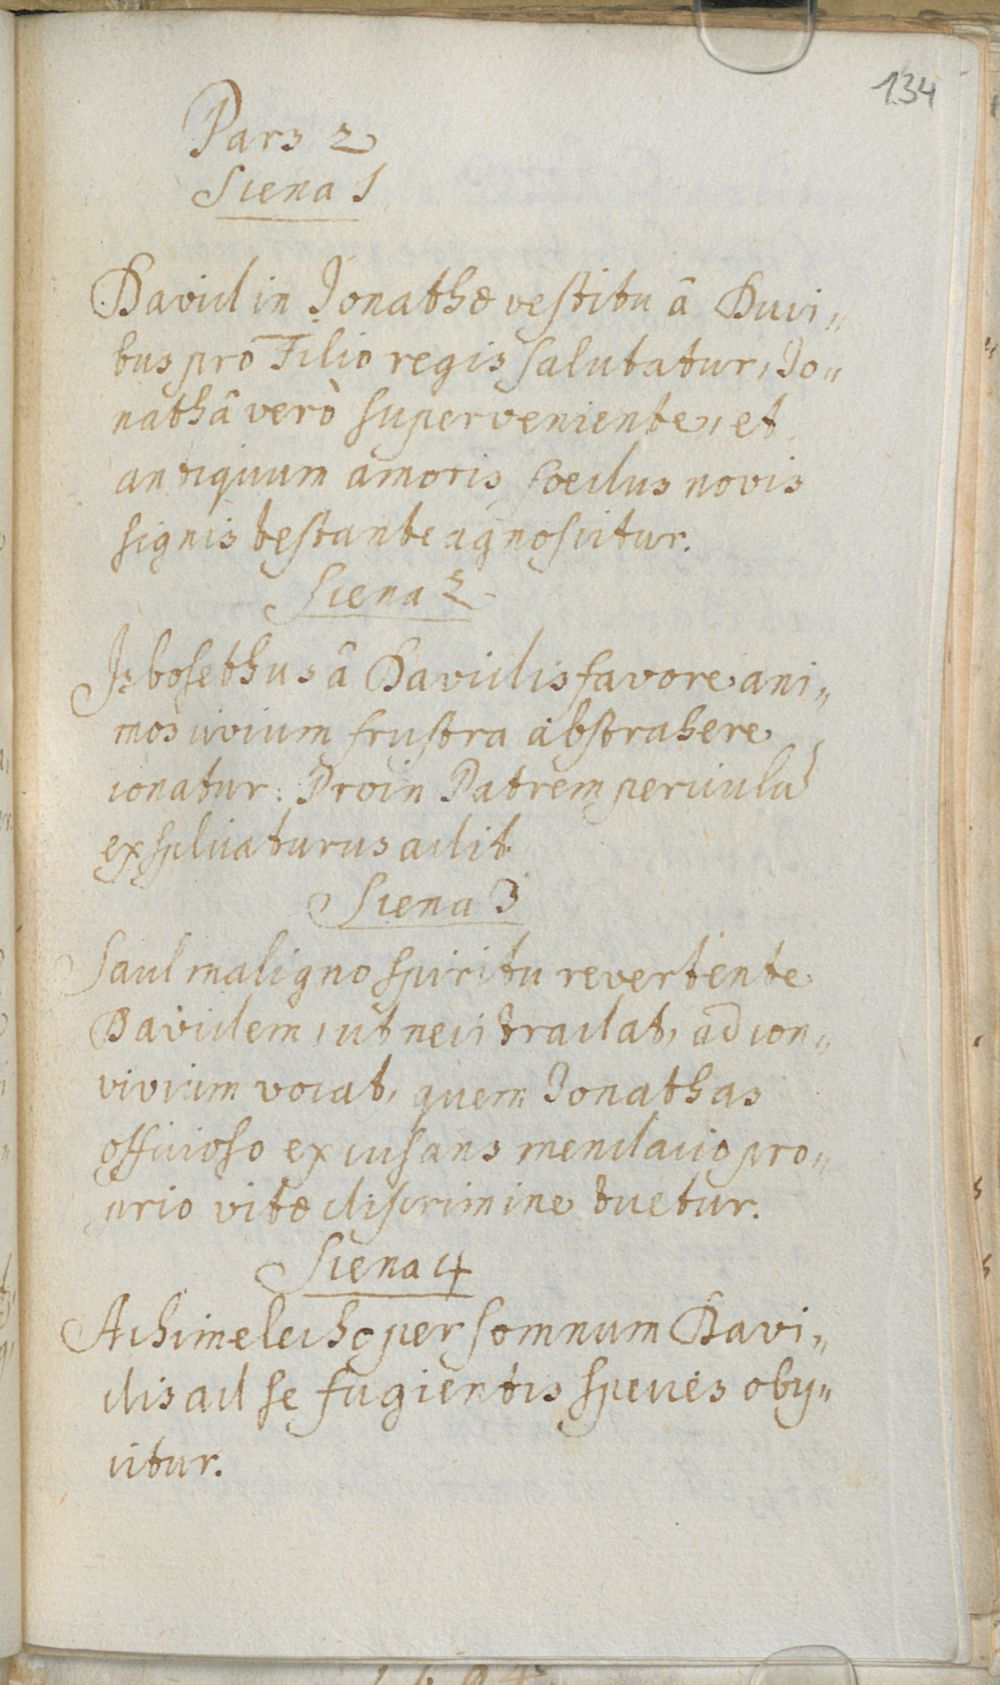 134
Pars 2
Scena 1
David in Jonathæ vestitu â Duci„
bus pro Filio regis salutatur, Jo„
nathâ verò superveniente, et
antiquum amoris foedus novis
signis testante agnoscitur.
Scena 2
Isbosethus â Davidis favore ani„
mos civium frustra abstrahere
conatur: Proin Patrem pericula
explicaturus adit
Scena 3
Saul maligno spiritu revertente
Davidem, ut neci tradat, ad con„
vivium vocat, quem Jonathas
officioso excusans mendacio pro„
prio vitæ discrimine tuetur.
Scena 4
Achimelecho per somnum Davi„
dis ad se fugientis species obij„
citur.